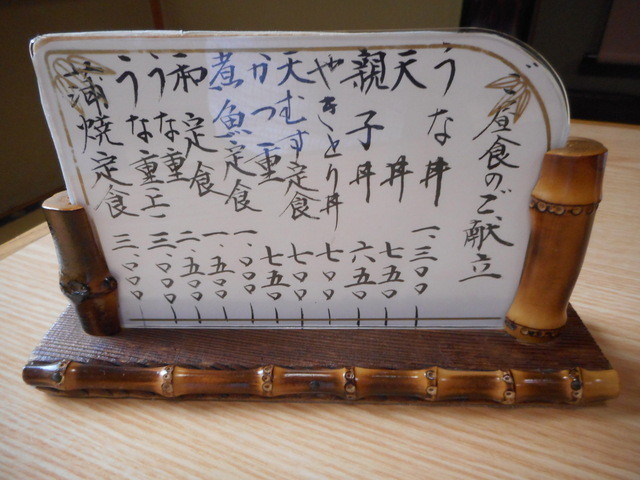 ご昼食のご献立
うな丼 一、三〇〇
天丼 七五〇
親子丼 六五〇
やきとり丼 七〇〇
天むす定食 七〇〇
かつ重 七五〇
煮魚定食 一、〇〇〇
和定食 一、五〇〇
うな重 二、五〇〇
うな重(上) 三、〇〇〇
蒲焼定食 三、〇〇〇